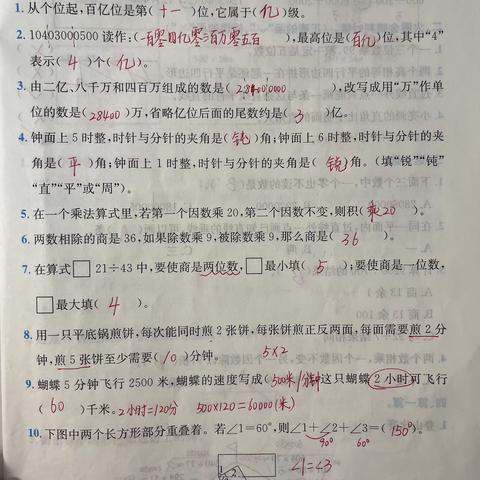 1. 从个位起,百亿位是第(十一)位,它属于(亿)级。
2. 10403000500 读作:(一百零四亿零三百万零五百),最高位是(百亿)位,其中“4”
表示(4)个(亿)。
3. 由二亿、八千万和四百万组成的数是(284000000),改写成用“万”作单
位的数是(28400)万,省略亿位后面的尾数约是(3)亿。
4. 钟面上 5 时整,时针与分针的夹角是(钝)角;钟面上 6 时整,时针与分针的夹
角是(平)角;钟面上 1 时整,时针与分针的夹角是(锐)角。(填“锐”“钝”
“直”“平”或“周”)。
5. 在一个乘法算式里,若第一个因数乘 20,第二个因数不变,则积(乘20)。
6. 两数相除的商是 36,如果除数乘 9,被除数乘 9,那么商是(36)。
7. 在算式□21÷43 中,要使商是两位数,□最小填(5);要使商是一位数,
□最大填(4)。
8. 用一只平底锅煎饼,每次能同时煎 2 张饼,每张饼煎正反两面,每面需要煎 2 分
钟,煎 5 张饼至少需要(10)分钟。 5×2
9. 蝴蝶 5 分钟飞行 2500 米,蝴蝶的速度写成(500米/分钟)这只蝴蝶 2 小时可飞行
(60)千米。2小时=120分 500×120=60000(米)
10. 下图中两个长方形部分重叠着。若∠1=60°,则∠1+∠2+∠3=(150°)。
90° 60°
1 2 ∠1=∠3